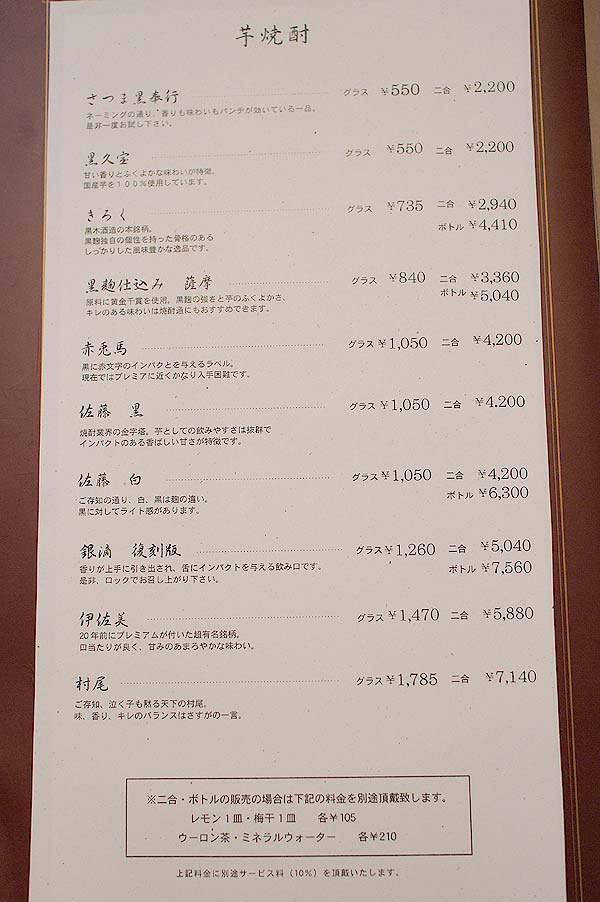 芋焼酎
さつま黒奉行 グラス ¥550 二合 ¥2,200
ネーミングの通り、香りも味わいもパンチが効いている一品。
是非一度お試し下さい。
黒久宝 グラス ¥550 二合 ¥2,200
甘い香りとふくよかな味わいが特徴。
国産芋を100%使用しています。
きろく グラス ¥735 二合 ¥2,940
ボトル ¥4,410
黒木酒造の本銘柄。
黒麹独自の個性を持った骨格のある
しっかりした風味豊かな逸品です。
黒麹仕込み 薩摩 グラス ¥840 二合 ¥3,360
ボトル ¥5,040
原料に黄金千貫を使用。黒麹の強さと芋のふくよかさ、
キレのある味わいは焼酎通にもおすすめできます。
赤兎馬 グラス ¥1,050 二合 ¥4,200
黒に赤文字のインパクとを与えるラベル。
現在ではプレミアに近くかなり入手困難です。
佐藤 黒 グラス ¥1,050 二合 ¥4.200
焼酎業界の金字塔。芋としての飲みやすさは抜群で
インパクトのある香ばしい甘さが特徴です。
佐藤 白 グラス ¥1,050 二合 ¥4,200
ボトル ¥6,300
ご存知の通り、白、黒は麹の違い。
黒に対してライト感があります。
銀滴 復刻版 グラス ¥1,260 二合 ¥5,040
ボトル ¥7,560
香りが上手に引き出され、舌にインパクトを与える飲み口です。
是非、ロックでお召し上がり下さい。
伊佐美 グラス ¥1,470 二合 ¥5,880
20年前にプレミアムが付いた超有名銘柄。
口当たりが良く、甘みのあまろやかな味わい。
村尾 グラス ¥1,785 二合 ¥7,140
ご存知、泣く子も黙る天下の村尾。
味、香り、キレのバランスはさすがの一言。
※二合・ボトルの販売の場合は下記の料金を別途頂戴致します。
レモン1皿・梅干1皿 各¥105
ウーロン茶・ミネラルウォーター 各¥210
上記料金に別途サービス料(10%)を頂戴いたします。